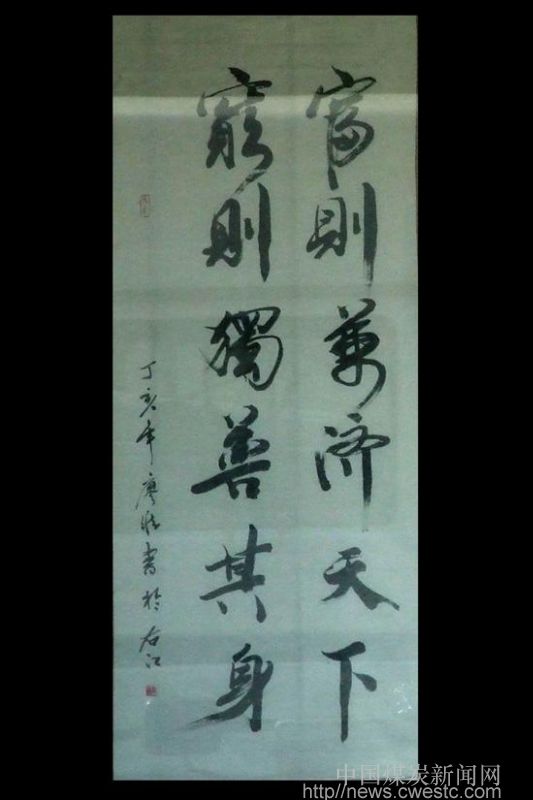 富則兼济天下
窮則獨善其身
丁亥年廖恬書於右江
中国煤炭新闻网
http://news.cwestc.com/